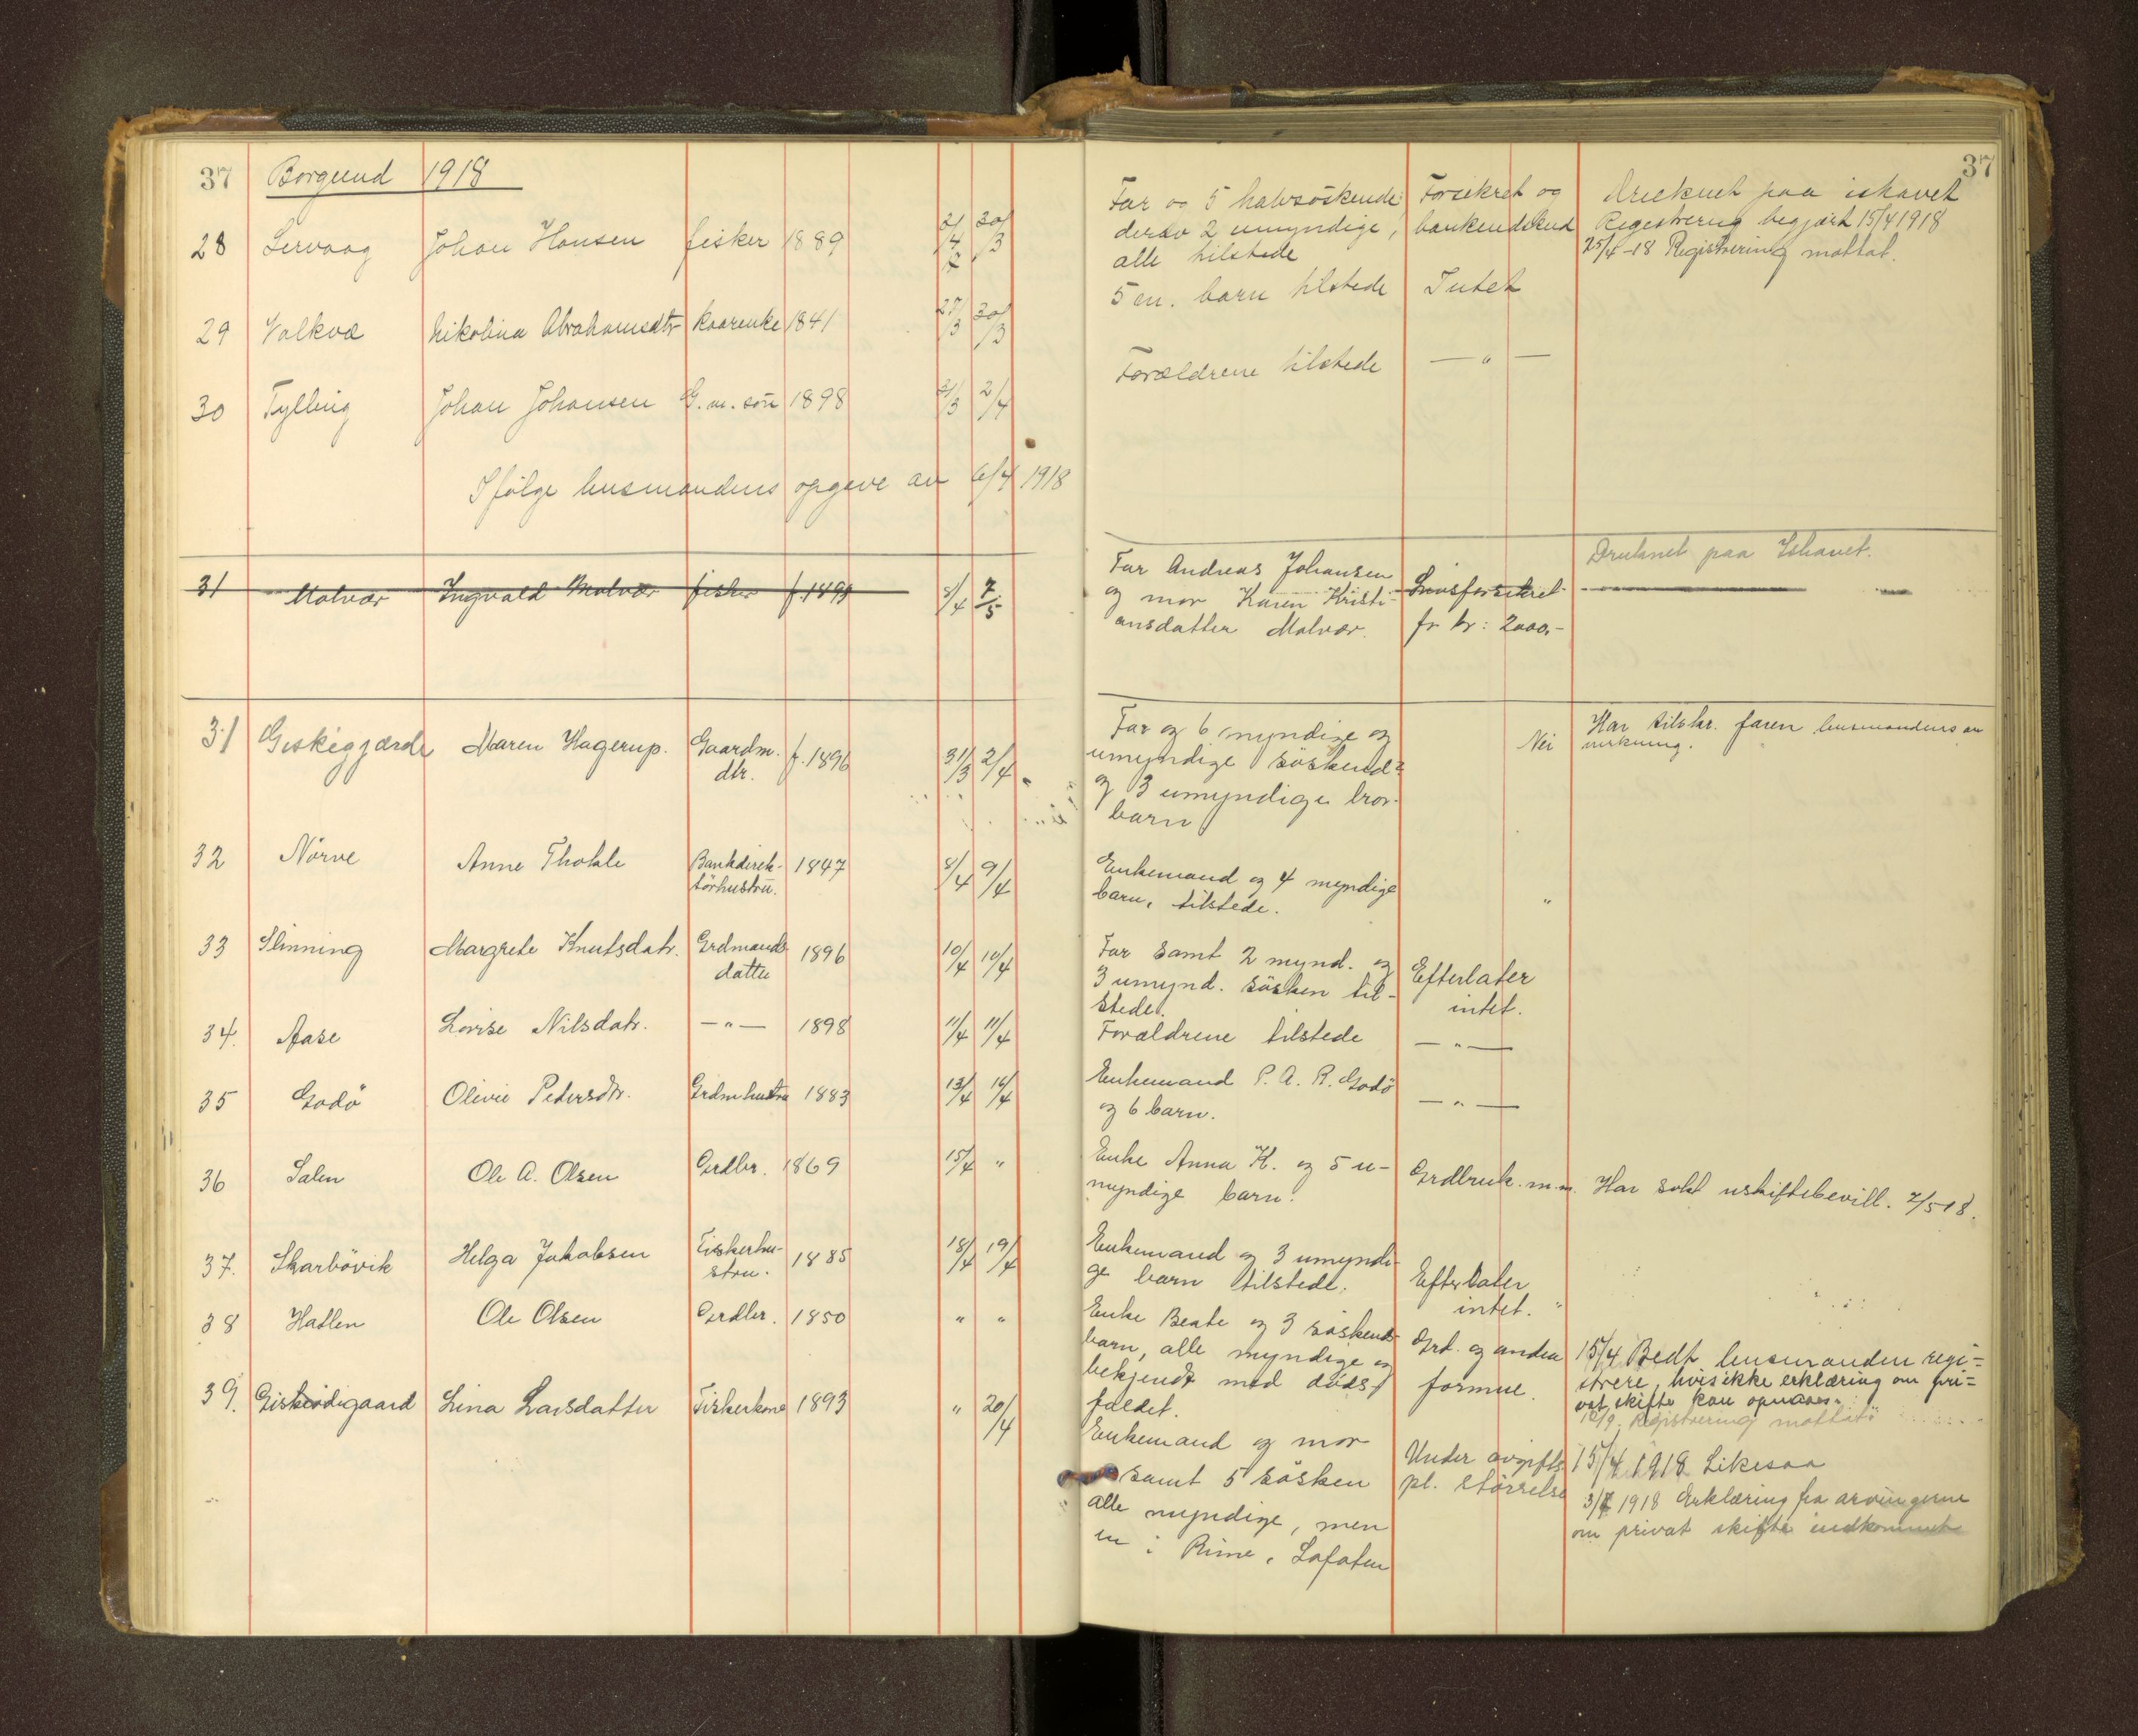 37 Borgund 1918
28 Servaag Johan Hansen fisker 1889 2/4 30/3
29 Valkvæ Nikolina Abrahamsdtr kaarenke 1841 27/3 30/3
30 Tylling Johan Johansen G.m.sön 1898 2/4
Ifölge lensmandens opgave av 6/4 1918
31 Molvær Ingvald Molvær fisker f. 1899 8/4 7/5
31 Giskegjærde Maren Hagerup. Gaardm. f. 1896 31/3 2/4
dtr.
32 Nörve Anne Tholde Bankdirek- 1847 8/4 9/4
törhustru.
33 Slinning Margrete Knutsdatr. Grdmands 1896 10/4 10/4
datter
34. Aase Lovise Nilsdatr. —"— 1898 11/4 11/4
35 Godö Olivie Pedersdtr. Grdmhustru 1883 13/4 16/4
36 Salen Ole A. Olsen Grdbr. 1869 15/4 "
37. Skarbövik Helga Jakobsen Fiskerhu- 1885 18/4 19/4
stru.
38 Hatlen Ole Olsen Grdbr. 1850 " "
39. Giskeödigaard Lina Larsdatter Fiskerkone 1893 " 20/4
37
Far og 5 halvsöskende; Forsikret og druknet paa ishavet
derav 2 umyndige, bankindskud Registrering begjært 15/4 1918
alle tilstede 25/4-18 Registrering mottat.
5 en. barn tilstede Intet
Forældrene tilstede —"—
Far Andreas Johansen Druknet paa Ishavet.
og mor Karen Kristi- Livsforsikret
ansdatter Molvær. for kr: 2000,-
Far og 6 myndige og Nei Har tilskr. faren lensmandens an
umyndige söskende merkning.
og 3 umyndige bror-
barn
Enkemand og 4 myndige "
barn, tilstede.
Far samt 2 mynd. og Efterlater
3 umynd. sösken til- intet.
stede.
Forældrene tilstede —"—
Enkemand P. A. R. Godö —"—
og 6 barn.
Enke Anna K. og 5 u- Grdbruk. m.m. Har sökt uskiftebevill. 2/5 18.
myndige barn.
Enkemand og 3 umyndi-
ge barn tilstede. Efterlater
intet. "
Enke Beate og 3 söskende
barn, alle myndige og Grd. og anden 15/4 Bedt lensmanden regi=
bekjendt med döds- formue. strere, hvis ikke erklæring om pri=
faldet. vat skifte kan opnaaes.
12/9. Registrering mottat
Enkemand og mor Under avgifts 15/4 1918 Likesaa
samt 5 sösken pl. störrelse 3/7 1918 Erklæring fra arvingerne
alle myndige, men om privat skifte indkommet
en i Lofoten